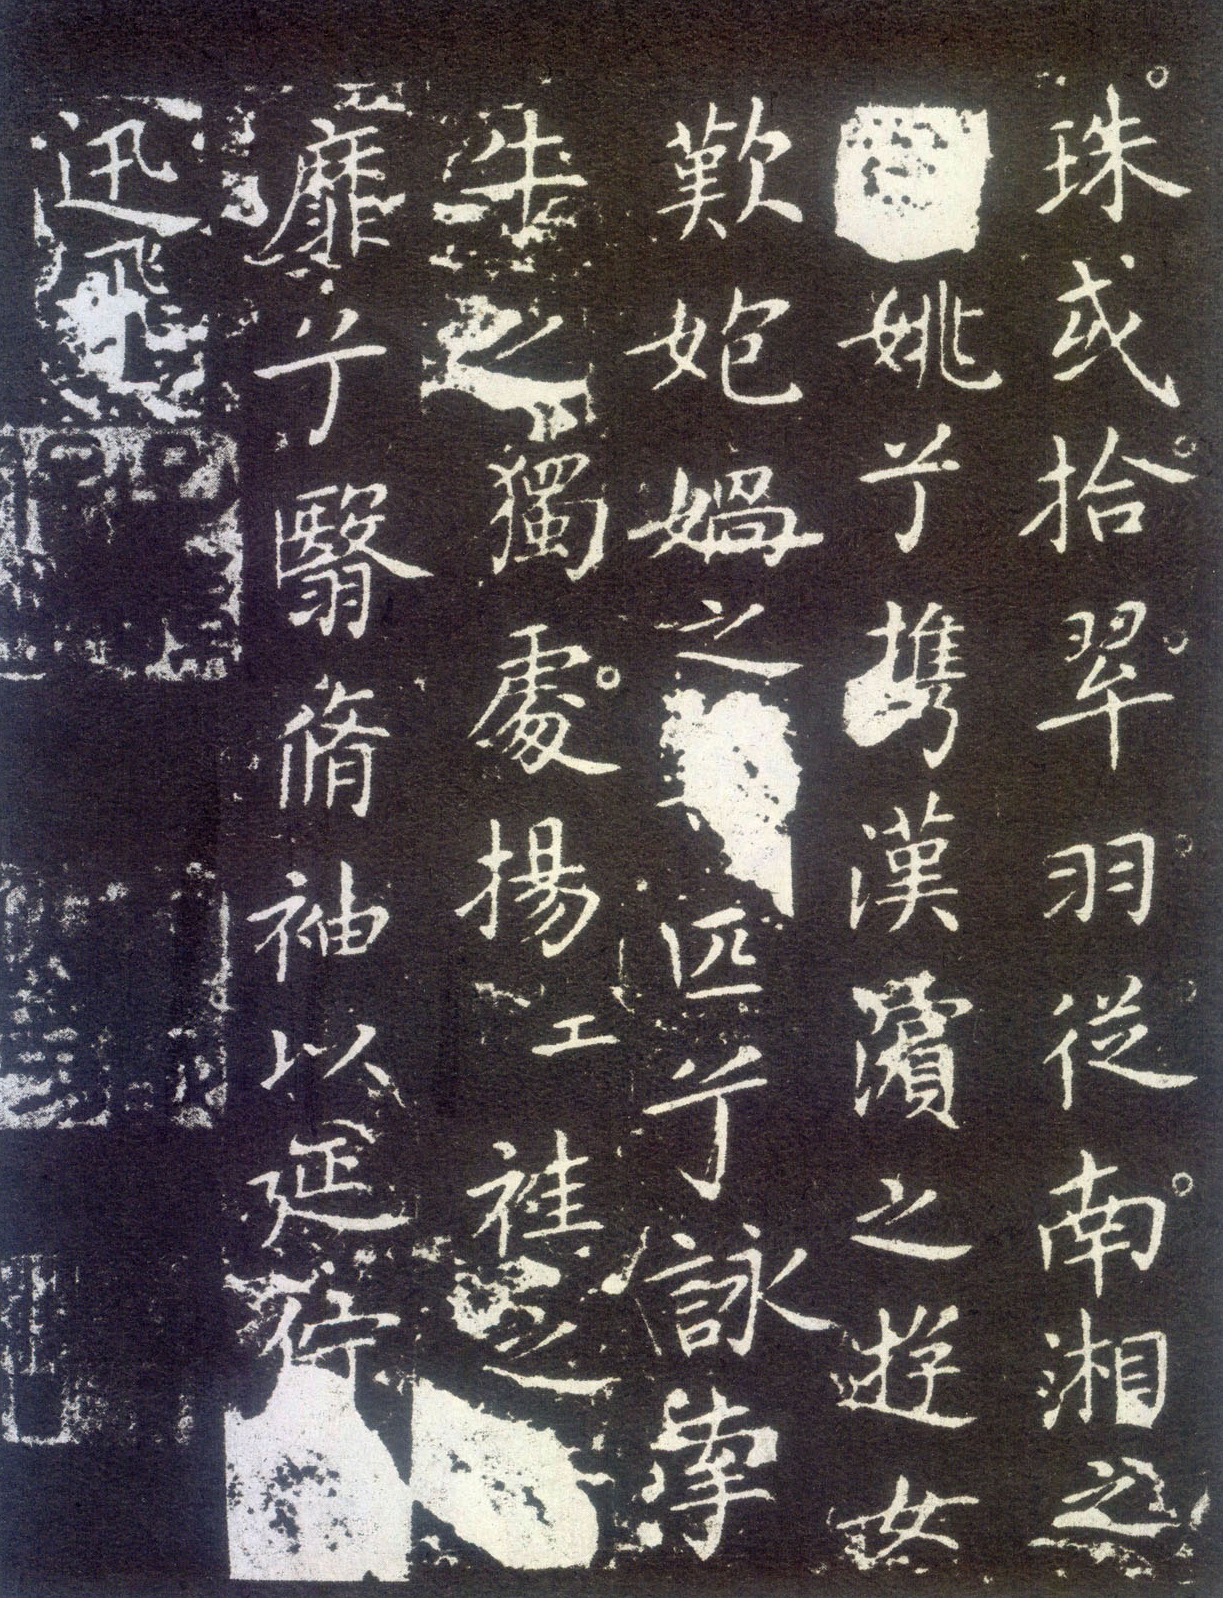 珠或拾翠羽從南湘之
姚兮攜漢濱之遊女
歎媧之匹兮詠牽
牛之獨處揚袿之
靡兮翳脩袖以延佇
迅飛